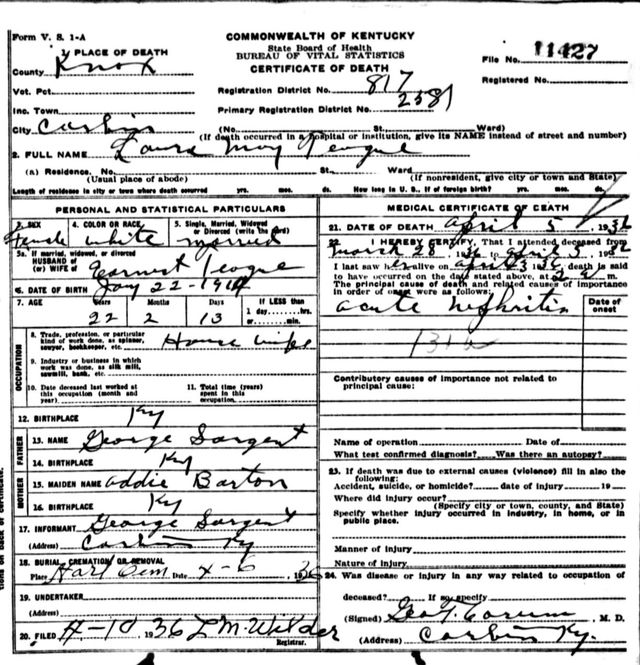 Form V. S. 1-A
COMMONWEALTH OF KENTUCKY
State Board of Health
BUREAU OF VITAL STATISTICS
CERTIFICATE OF DEATH
File No. 11427
Registered No.
1. PLACE OF DEATH
County Knox
Vot. Pct.
Inc. Town
City Corbin
Registration District No. 817
Primary Registration District No. 2381
(No. St. Ward)
(If death occurred in a hospital or institution, give its NAME instead of street and number)
2. FULL NAME Laura May Teague
(a) Residence. No. St. Ward
(Usual place of abode) (If nonresident, give city or town and State)
Length of residence in city or town where death occurred yrs. mos. ds. How long in U. S., if of foreign birth? yrs. mos. ds.
PERSONAL AND STATISTICAL PARTICULARS
3. SEX Female
4. COLOR OR RACE. White
5. Single, Married, Widowed or Divorced (write the word) married
5a. If married, widowed, or divorced
HUSBAND of
(or) WIFE of Earnest Teague
6. DATE OF BIRTH Jany 22-1914
7. AGE Years 22 Months 2 Days 13
If LESS than 1 day......hrs. or......min.
OCCUPATION
8. Trade, profession, or particular kind of work done, as spinner, sawyer, bookkeeper, etc. House wife
9. Industry or business in which work was done, as silk mill, sawmill, bank, etc.
10. Date deceased last worked at this occupation (month and year)
11. Total time (years) spent in this occupation.
12. BIRTHPLACE Ky
FATHER
13. NAME George Sargent
14. BIRTHPLACE Ky
MOTHER
15. MAIDEN NAME Addie Barton
16. BIRTHPLACE Ky
17. INFORMANT George Sargent
(Address) Corbin Ky
18. BURIAL, CREMATION, OR REMOVAL
Place Hart Cem Date 4-6 1936
19. UNDERTAKER
(Address)
20. FILED 4-10 1936 L M Wilder
Registrar.
MEDICAL CERTIFICATE OF DEATH
21. DATE OF DEATH April 5, 1936
22. I HEREBY CERTIFY, That I attended deceased from
March 28 1936 to April 5, 1936
I last saw h alive on April 3 1936, death is said
to have occurred on the date stated above, at 2 m.
The principal cause of death and related causes of importance in order of onset were as follows:
Date of onset
acute nephritis
Contributory causes of importance not related to principal cause:
Name of operation Date of
What test confirmed diagnosis? Was there an autopsy?
23. If death was due to external causes (violence) fill in also the following:
Accident, suicide, or homicide? date of injury 19
Where did injury occur?
(Specify city or town, county, and State)
Specify whether injury occurred in industry, in home, or in public place.
Manner of injury
Nature of injury
24. Was disease or injury in any way related to occupation of
deceased? If so, specify
(Signed) Geo. T. Corum, M. D.
(Address) Corbin Ky.